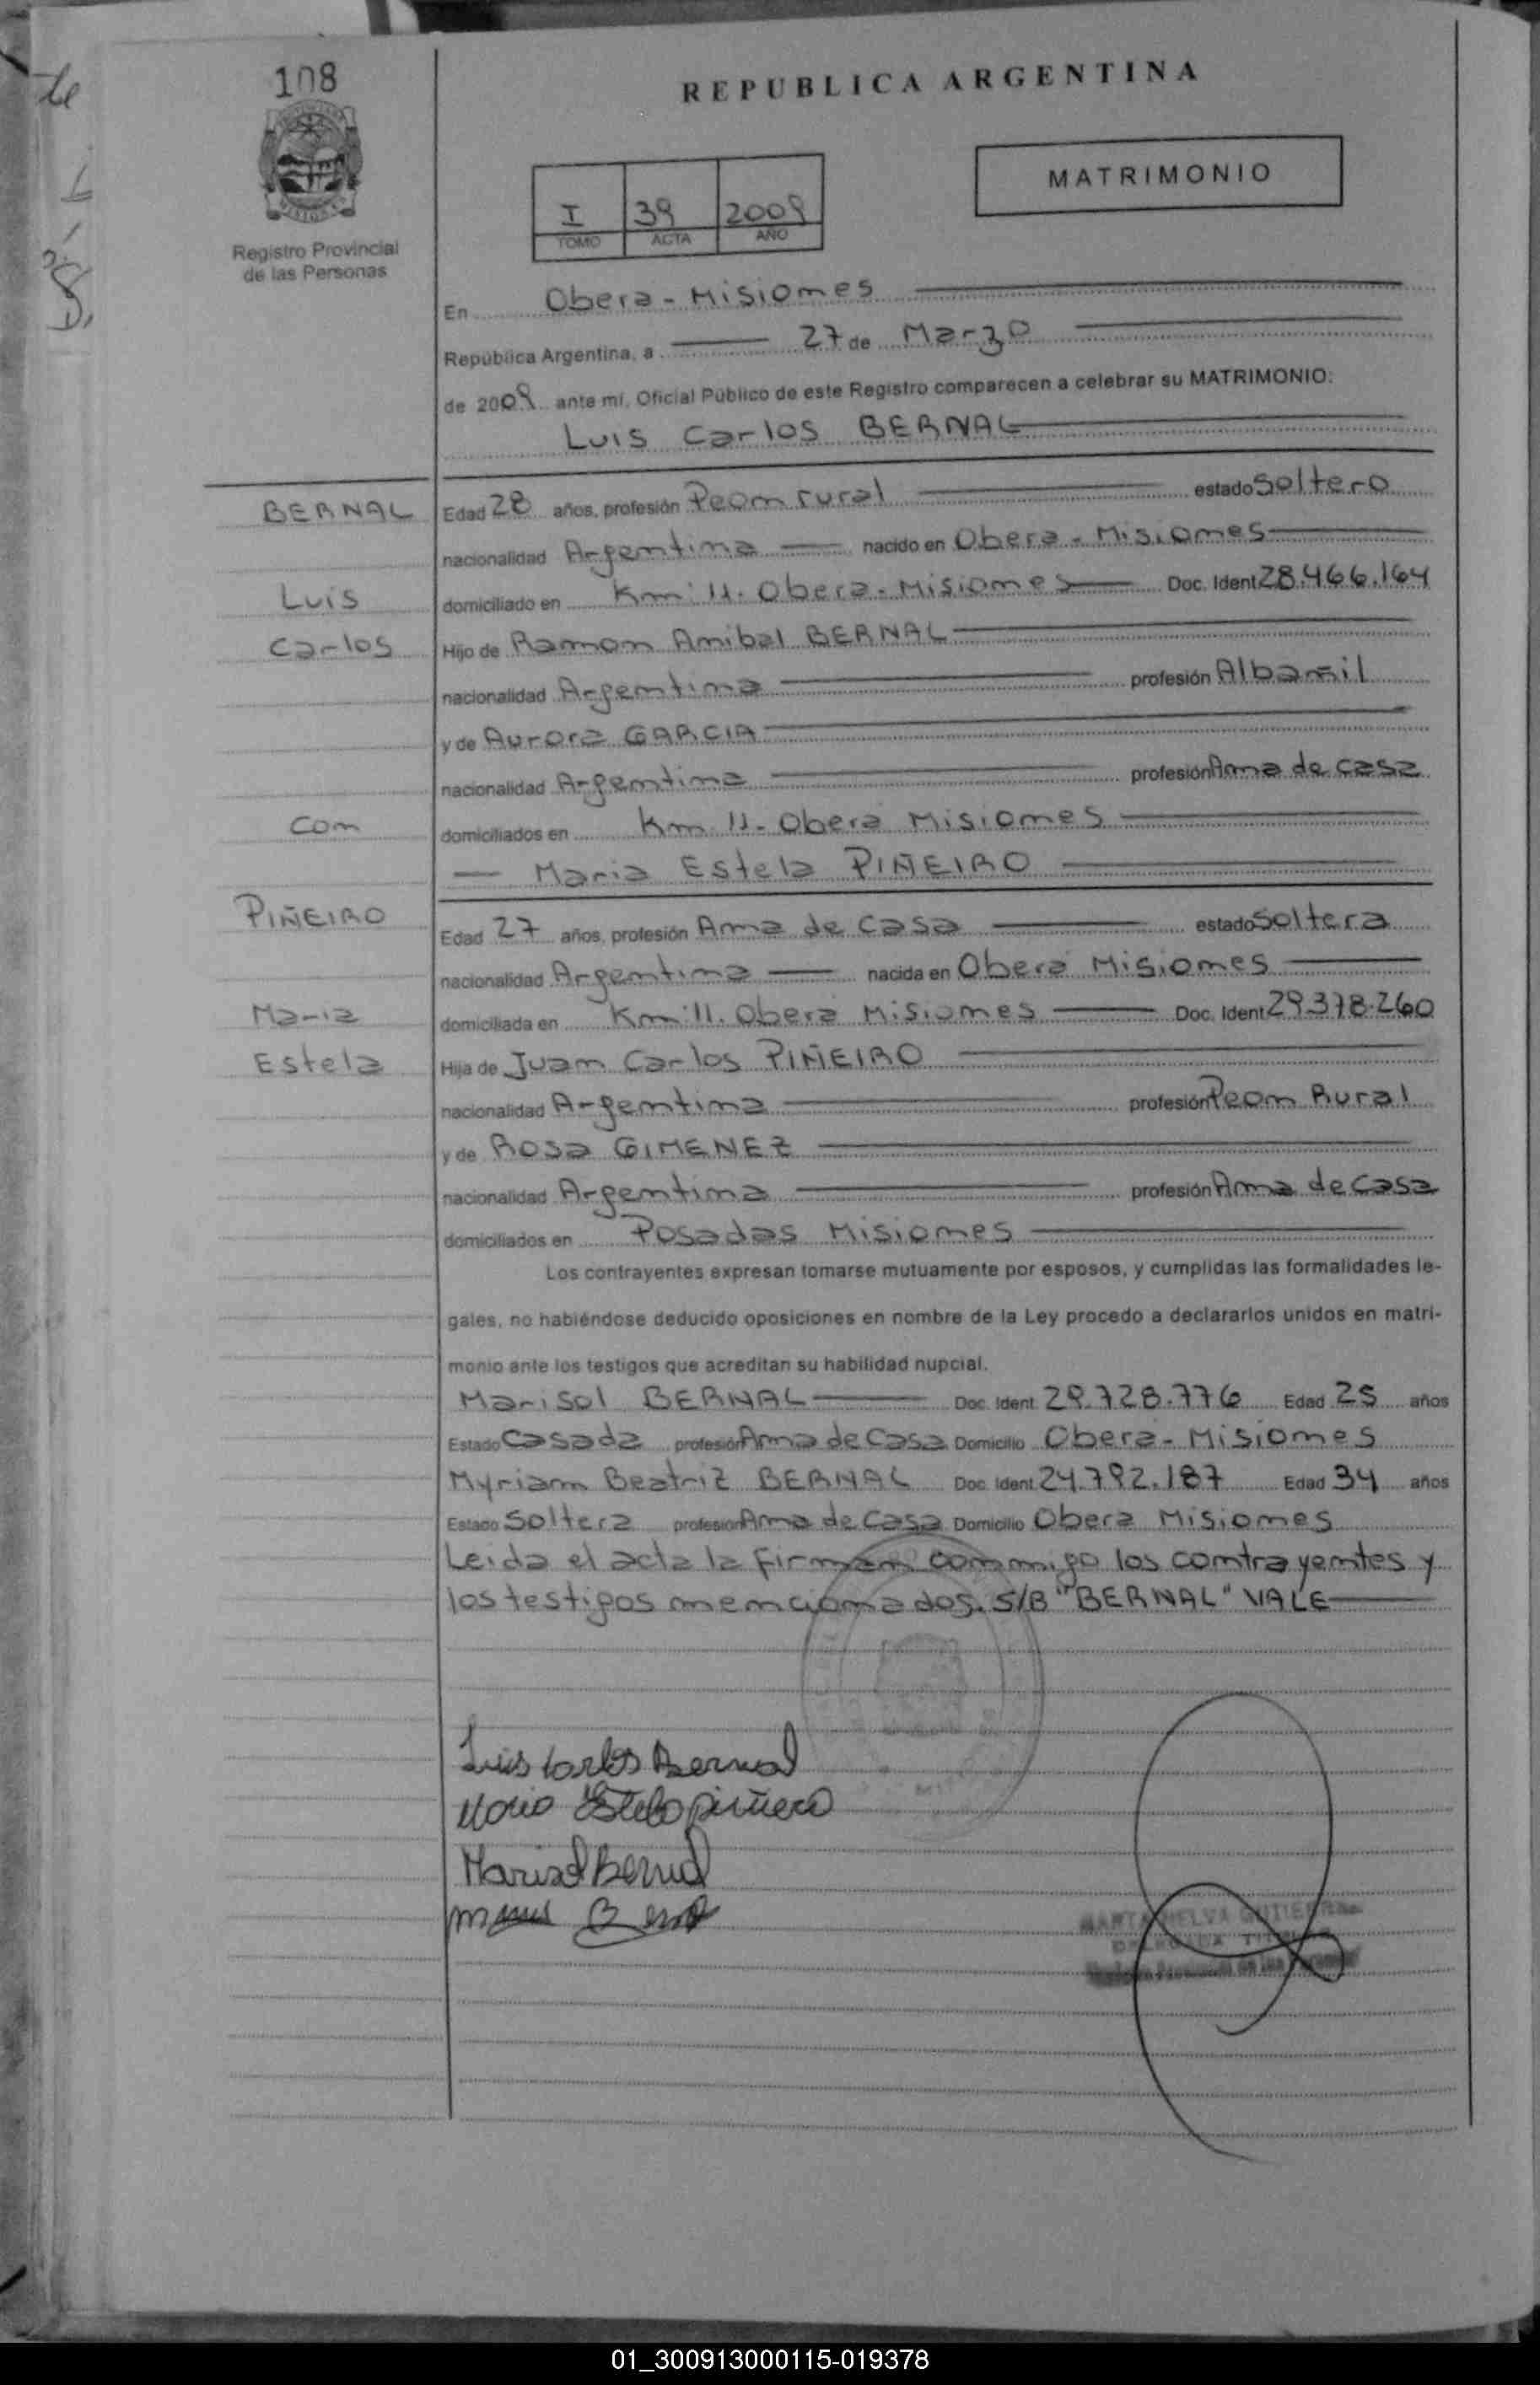 108
REPUBLICA ARGENTINA
MATRIMONIO
I 39 2009
TOMO ACTA AÑO
Registro Provincial
de las Personas
En Obera - Misiones
República Argentina, a 27 de Marzo
de 2009 ante mí, Oficial Público de este Registro comparecen a celebrar su MATRIMONIO:
Luis Carlos BERNAL
BERNAL
Edad 28 años, profesión Peon rural estado Soltero
nacionalidad Argentina nacido en Obera - Misiones
Luis
domiciliado en Km: 11. Obera - Misiones Doc. Ident 28.466.164
Carlos
Hijo de Ramon Anibal BERNAL
nacionalidad Argentina profesión Albañil
y de Aurora GARCIA
nacionalidad Argentina profesión Ama de casa
con
domiciliados en Km 11 - Obera Misiones
Maria Estela PIÑEIRO
PIÑEIRO
Edad 27 años, profesión Ama de casa estado Soltera
nacionalidad Argentina nacida en Obera Misiones
Maria
domiciliada en Km: 11. Obera Misiones Doc. Ident 29.378.260
Estela
Hija de Juan Carlos PIÑEIRO
nacionalidad Argentina profesión Peon Rural
y de Rosa GIMENEZ
nacionalidad Argentina profesión Ama de casa
domiciliados en Posadas Misiones
Los contrayentes expresan tomarse mutuamente por esposos, y cumplidas las formalidades le-
gales, no habiéndose deducido oposiciones en nombre de la Ley procedo a declararlos unidos en matri-
monio ante los testigos que acreditan su habilidad nupcial.
Marisol BERNAL Doc. Ident. 29.728.776 Edad 25 años
Estado Casada profesión Ama de Casa Domicilio Obera - Misiones
Myriam Beatriz BERNAL Doc. Ident 24.792.187 Edad 34 años
Estado Soltera profesión Ama de Casa Domicilio Obera Misiones
Leida el acta la firman conmigo los contrayentes y
los testigos mencionados. S/B "BERNAL" VALE
Luis Carlos Bernal
Maria Estela piñero
Marisol Bernal
MARTA HELVA GUTIERREZ
DELEGADA TITULAR
Registro Provincial de las Personas
01_300913000115-019378